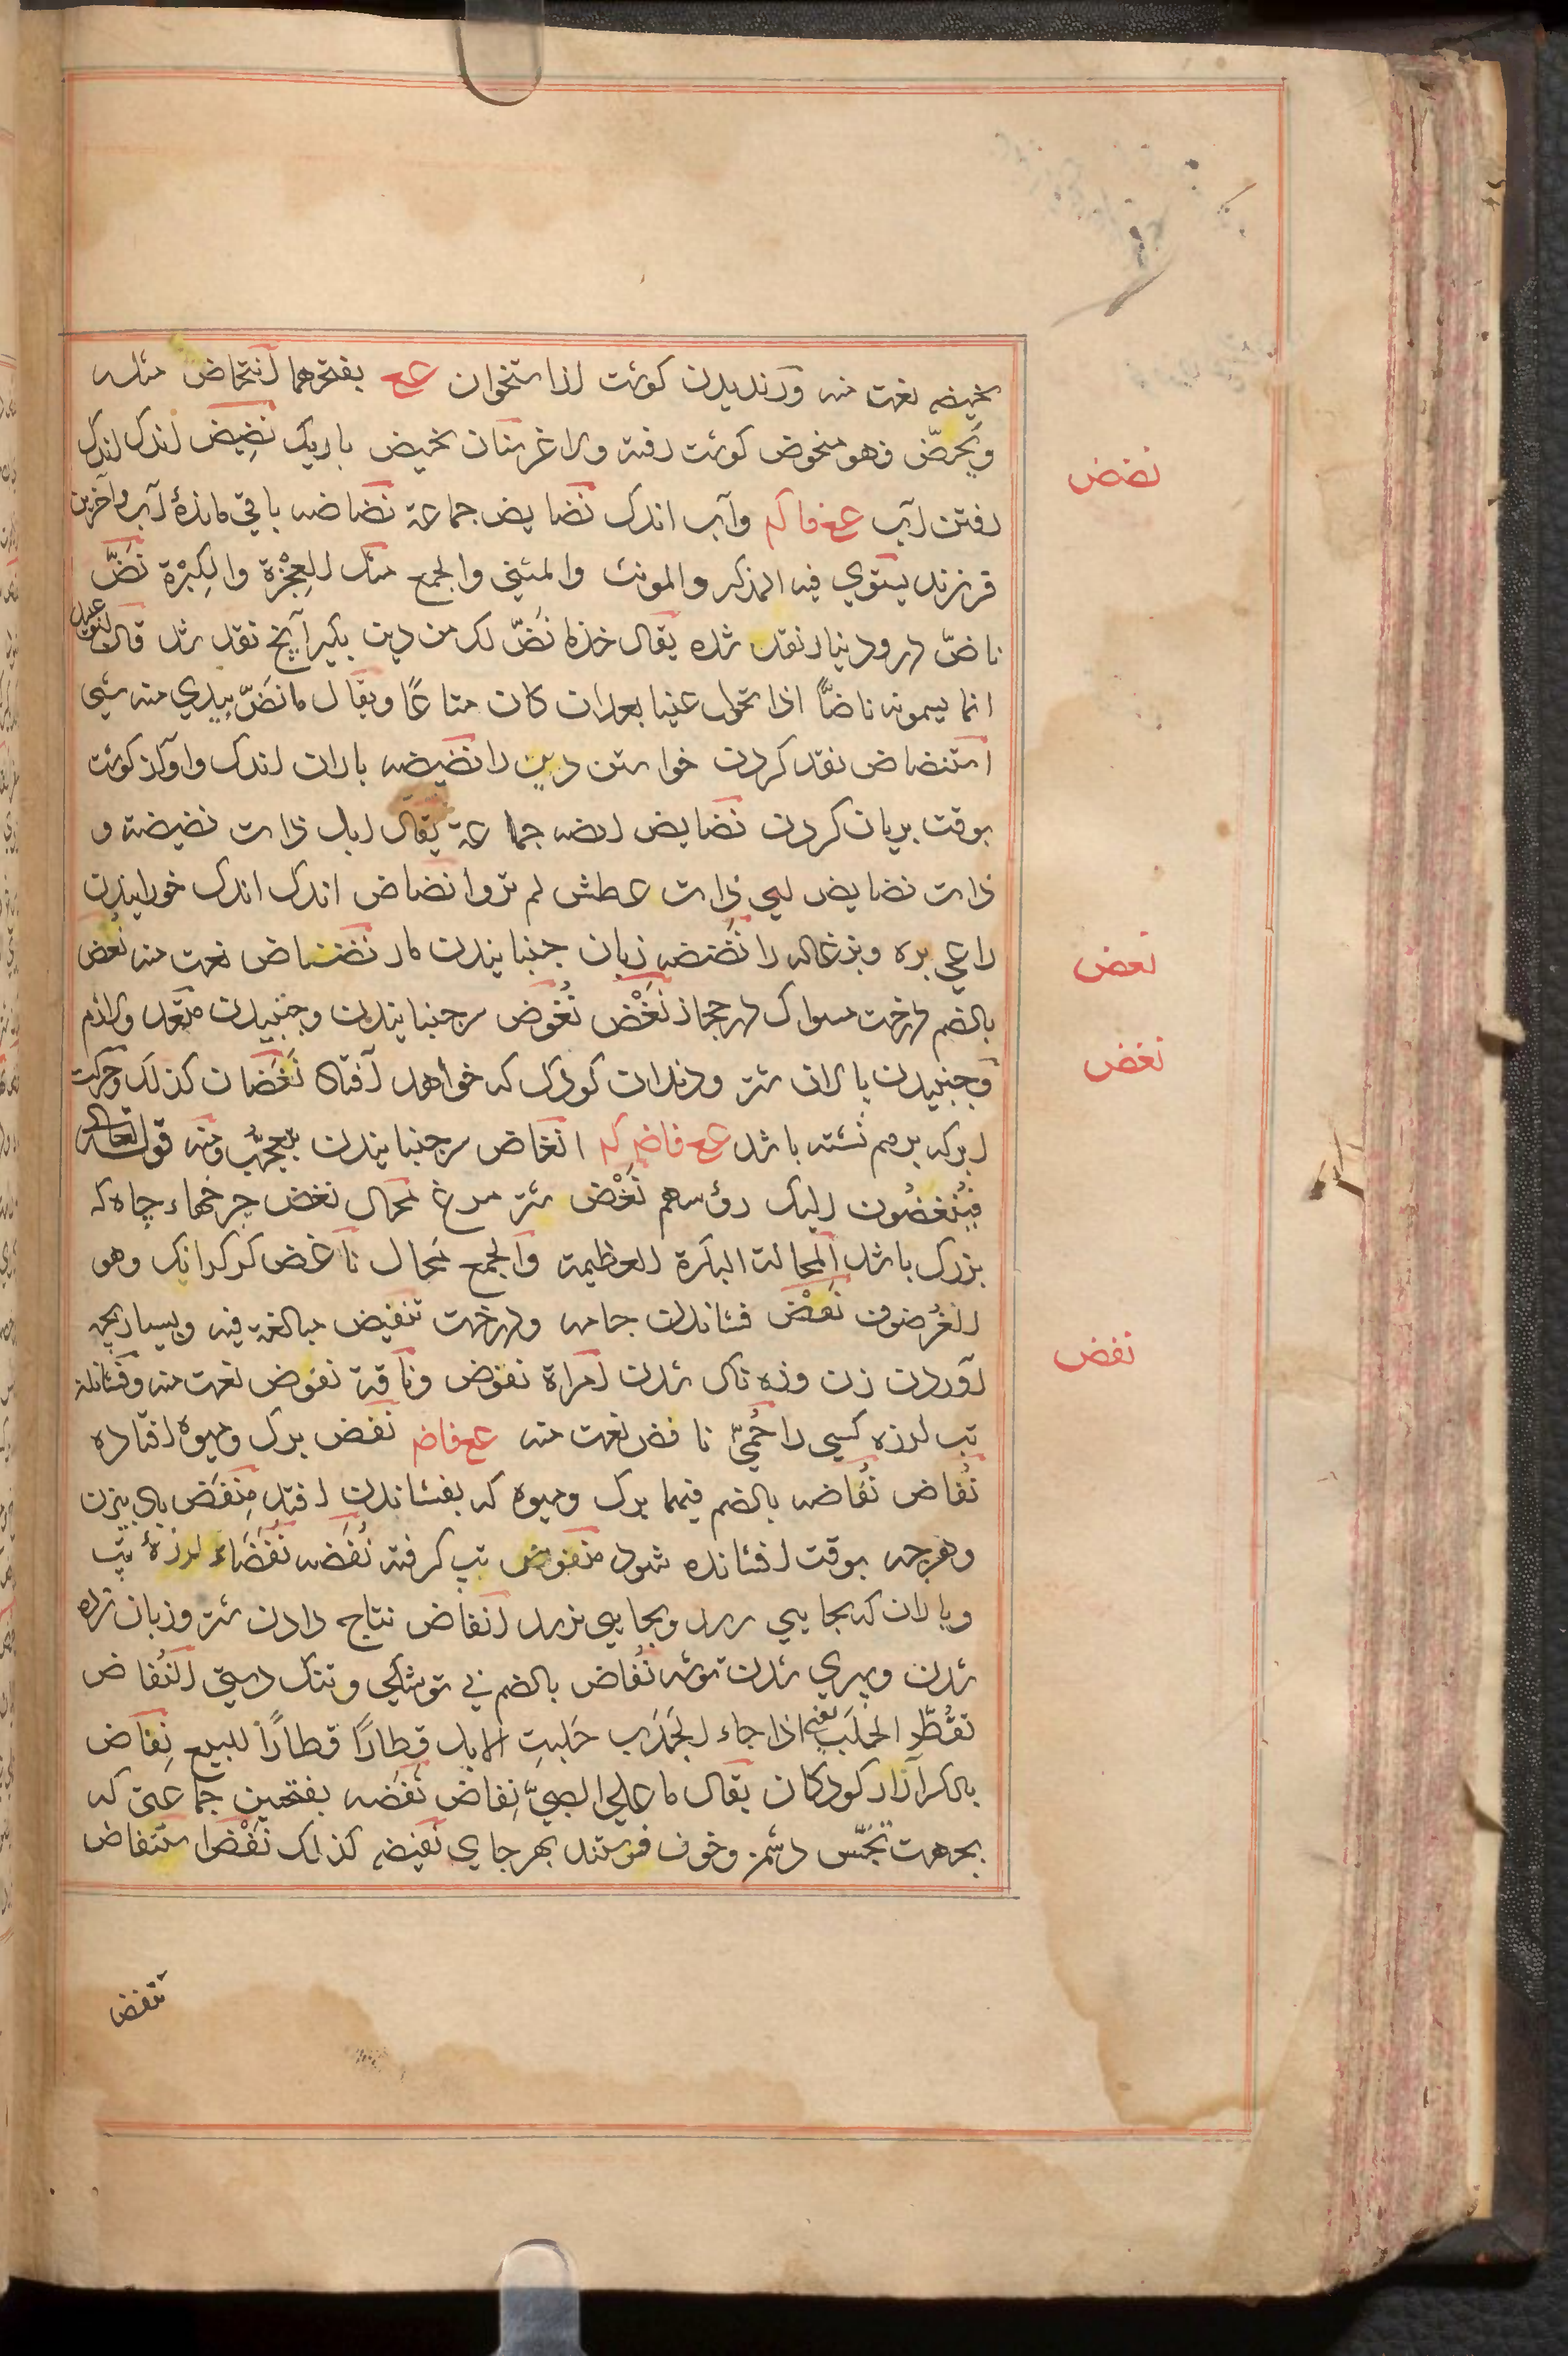 نحیضه نعت منه ورندیدن کوشت از استخوان عع بفتحهما انتحاض مثله
ونُحِض فهو منحوض کوشت رفته ولاغر سنان نحیض باریک نَضِیض اندک اندک
نضض
رفتن آب عع فاکم وآب اندک نضایض جماعة نُضاضه باقی مانده آب وآخرین
فرزند یستوي فیه المذکر والمونث والمثنی والجمع مثل العِجْزة والکِبْرة نَضّ
ناضّ درم ودینار نقد شده یقال خذ ما نَضّ لک من دین بکیر آنچ نقد شد قال ابو عبید
انما یسمونه ناضًّا اذا تحول عینا بعد ان کان متاعًا ویقال ما نَضّ بیدي منه شیی
استنضاض نقد کردن خواستن دین را نضیضه باران اندک وآواز کوشت
بوقت بریان کردن نضایض انضه جماعة یقال ابل ذات نضیضة و
ذات نضایض ای ذات عطش لم ترو انضاض اندک اندک خورانیدن
راعی بره وبزغاله را نَضْنَضه زبان جنبانیدن مار نضناض نعت منه نُعْض
نعض
بالضم درخت مسواک در حجاز نَغْض نُغُوض سر جنبانیدن وجنبیدن متعد ولازم
نغض
وجنبیدن پالان شتر ودندان کودک که خواهد افتاد نَغَضان کذلک وحرکت
ابر که برهم نشسته باشد عع فاض کم انغاض سر جنبانیدن بتعجب ومنه قوله تعالی
فَیُنغِضُون الیک رؤسهم نَغْض شتر مرغ محال نغض چرخهاء چاه که
بزرک باشد المحالة البکرة العظیمة والجمع مَحال ناغض کرکرانک وهو
الغُرضوف نَفْض فشاندن جامه ودرخت تنفیض مبالغة فیه وبسیار بچه
نفض
آوردن زن وزه ناک شدن امراة نفوض وناقة نفوض نعت منه وفشاندن
تب لرزه کسی را حُمّیٰ نافض نعت منه عع فاض نَفَض برک ومیوه افتاده
نُفاض نُفاضه بالضم فیهما برک ومیوه که بفشاندن افتد مِنْفَض بالای بیزن
وهرچه بوقت افشانده شود منفوض تب کرفته نُفَضه نُفَضاء لرزهٔ تب
وباران که بجایی رسد وبجایی نرسد انفاض نتاج دادن شتر وزیان زده
شدن وسپری شدن توشه نُفاض بالضم بی توشکی وتنک دستی النُفاض
تقُطِّر الجَلَب یعنی اذا جاء الجَدَب جَلبتِ الابل قِطارًا قطارًا للبیع نِفاض
بالکسر ازار کودکان یقال ما علی الصبیّ نِفاض نَفَضه بفتحتین جماعتی که
بجهت تجسّس دشمن وخوف فرستند بهر جای نفیضه کذلک نَفْض استنفاض
تنفض